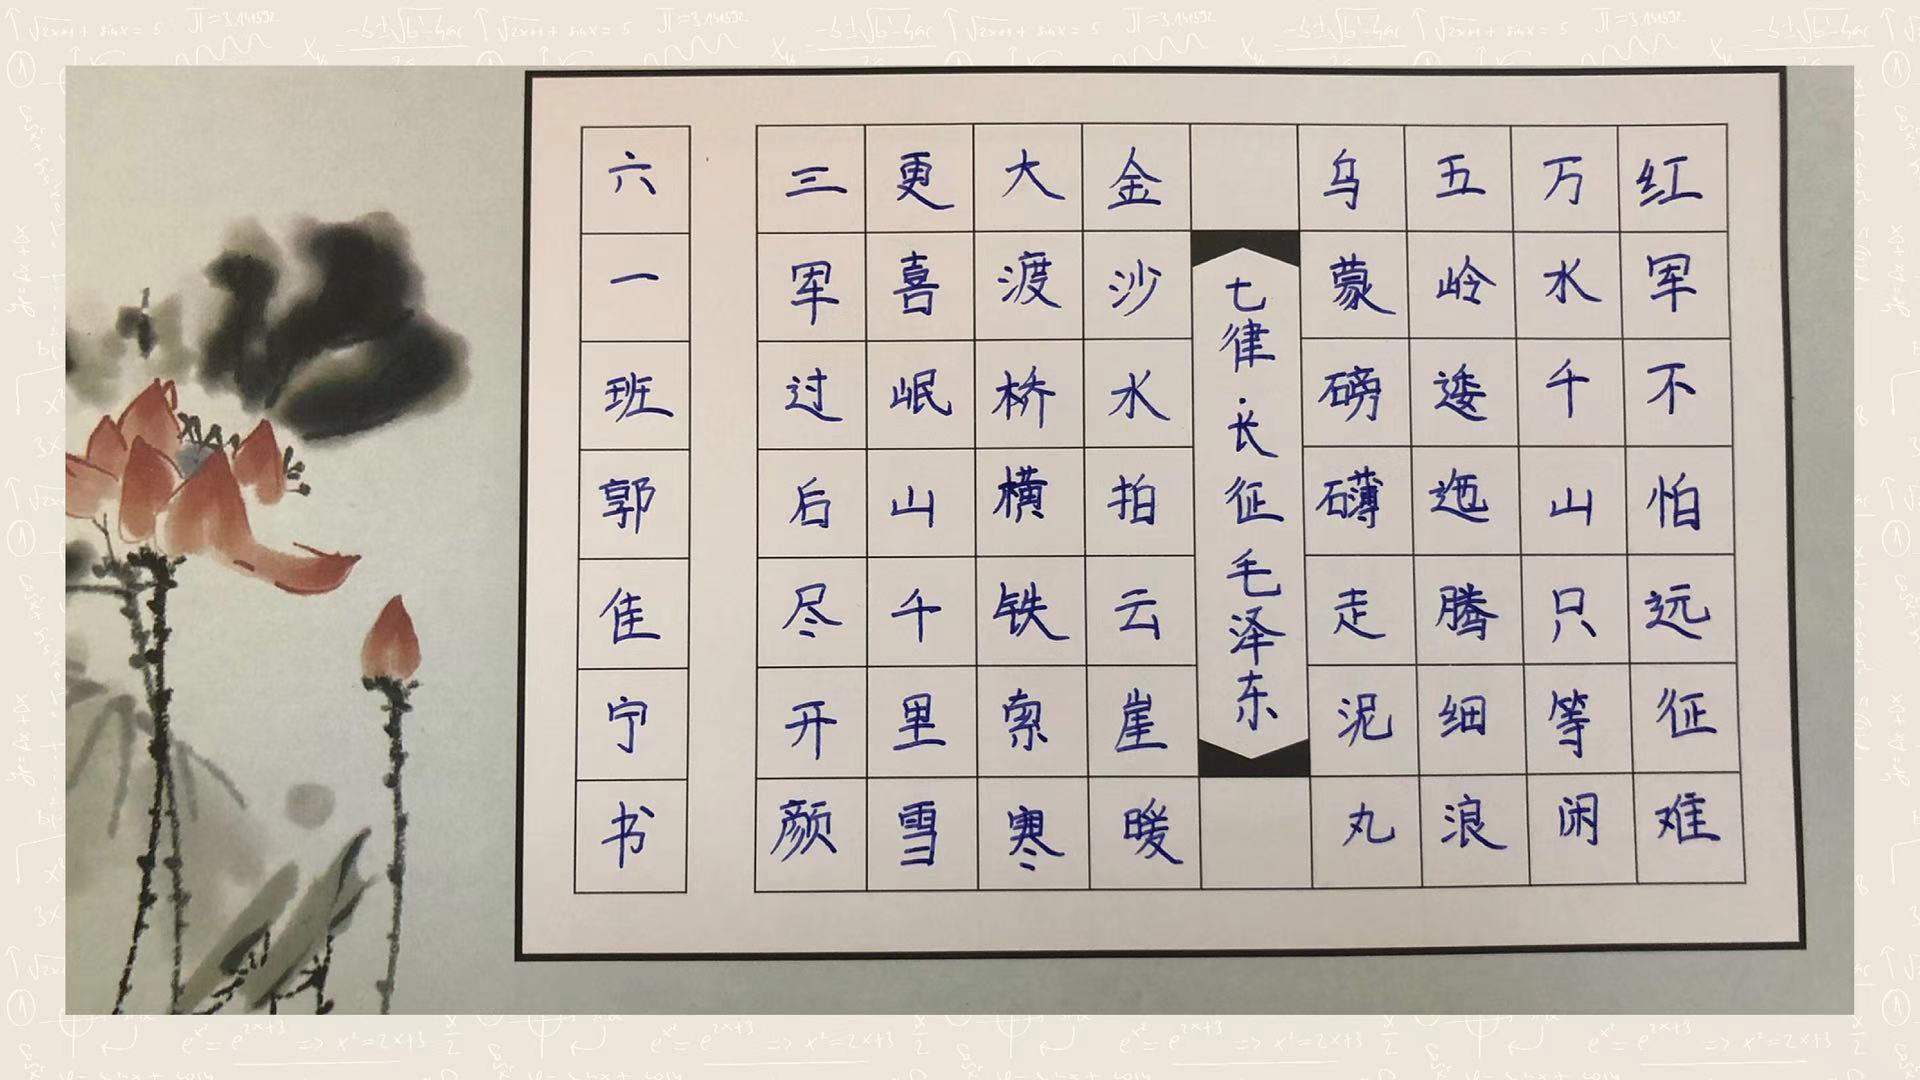 红军不怕远征难
万水千山只等闲
五岭逶迤腾细浪
乌蒙磅礴走泥丸
七律·长征 毛泽东
金沙水拍云崖暖
大渡桥横铁索寒
更喜岷山千里雪
三军过后尽开颜
六一班郭佳宁书